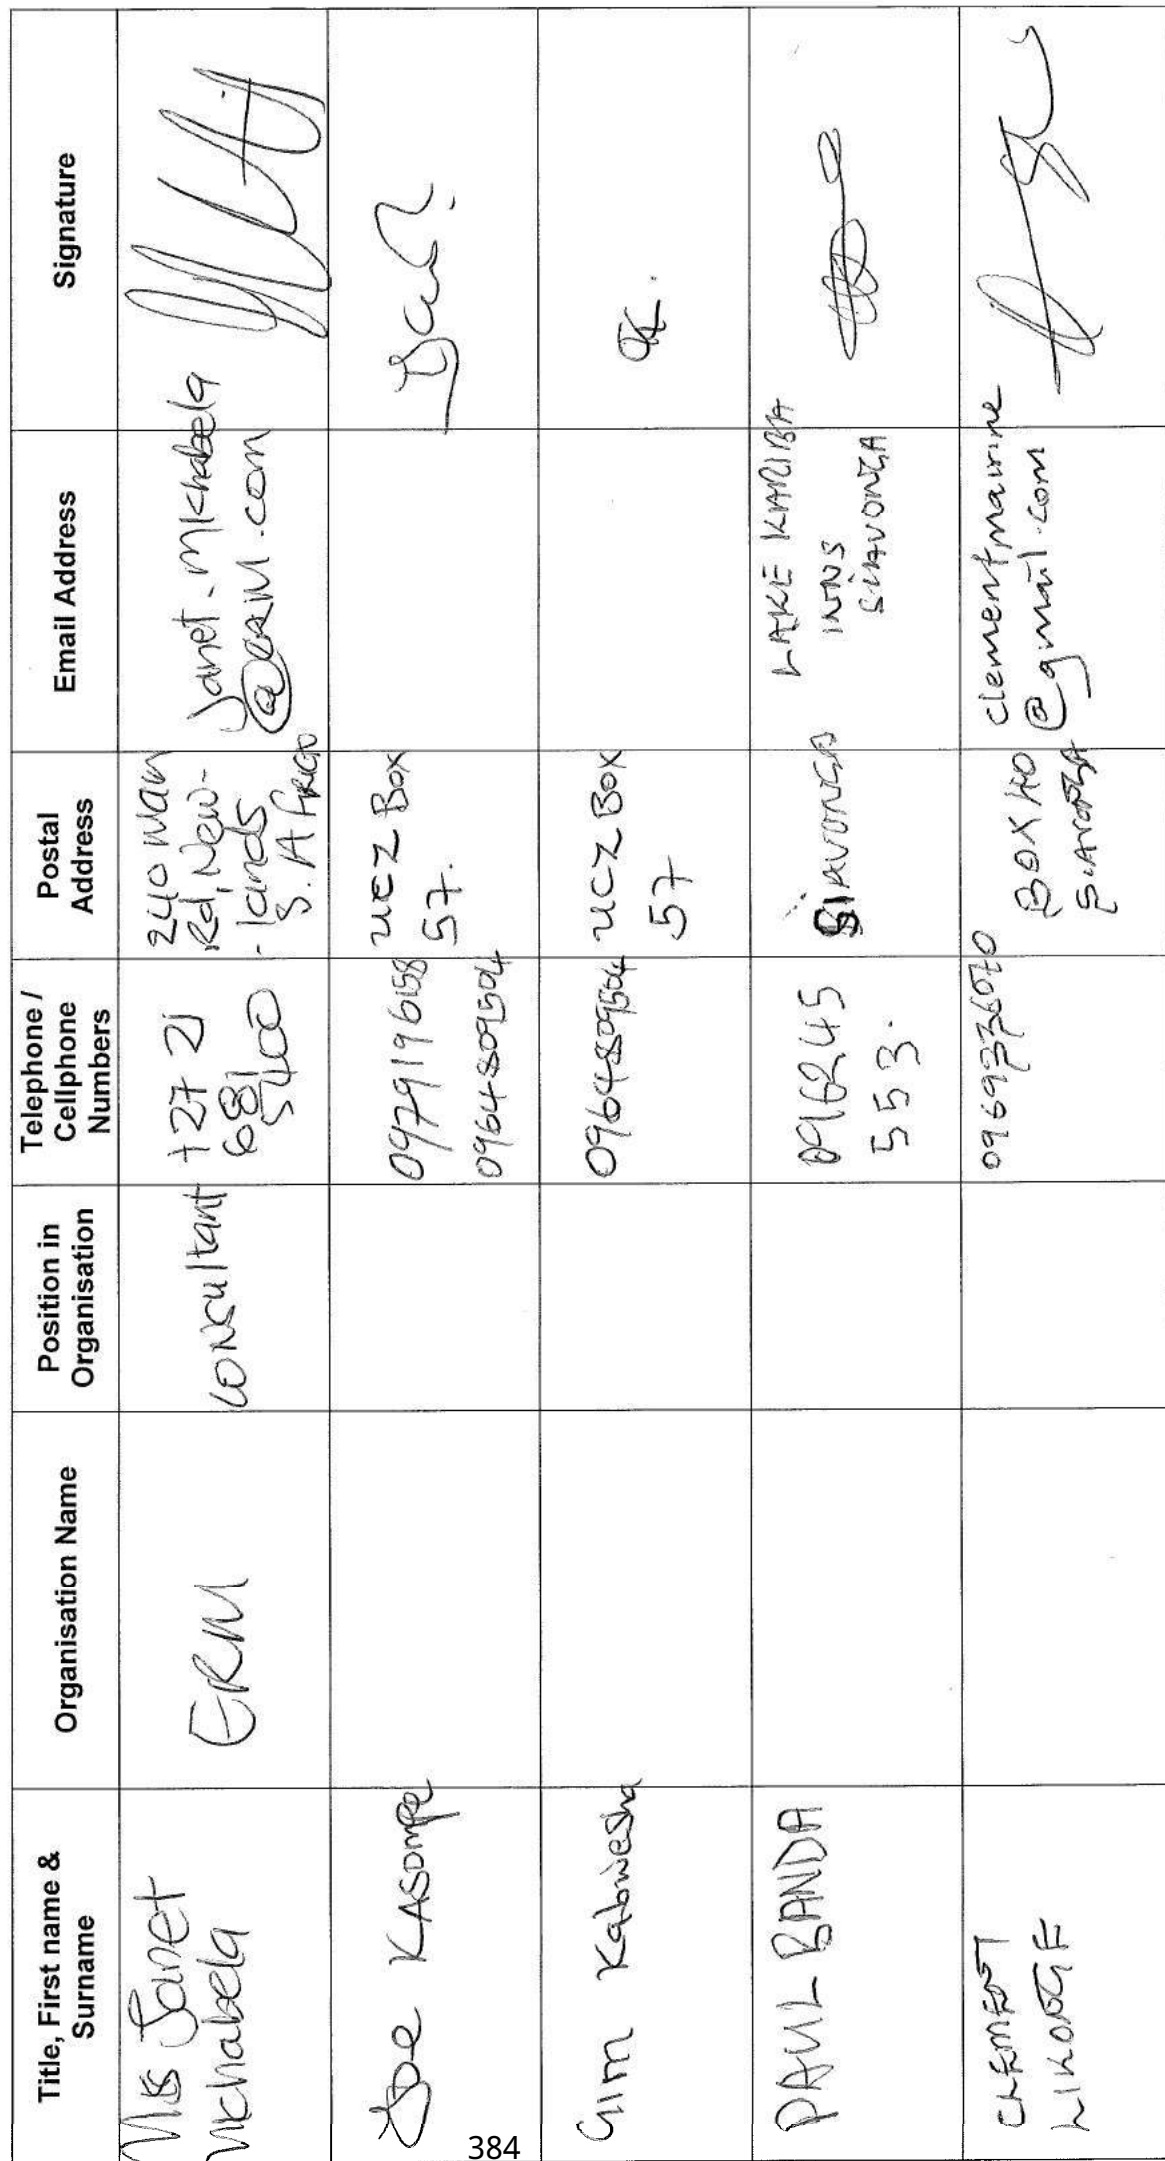 Title, First name &
Surname
Organisation Name
Position in
Organisation
Telephone /
Cellphone
Numbers
Postal
Address
Email Address
Signature
Miss Janet
Mkhabela
ERM
Consultant
+27 21
681
5400
240 Main
Rd, New-
- lands
S. Africa
Janet.Mkhabela
@erm.com
Joe KAsompe
0979196158
0964809504
UCZ Box
57.
Gim Kabwesha
0964809504
UCZ Box
57
PAUL BANDA
0916245
553.
SIAVONGA
LAKE KARIBA
INNS
SIAVONGA
CLEMENT
LIKONGE
BOX 40
SIAVONGA
clementmarine
@gmail.com
384